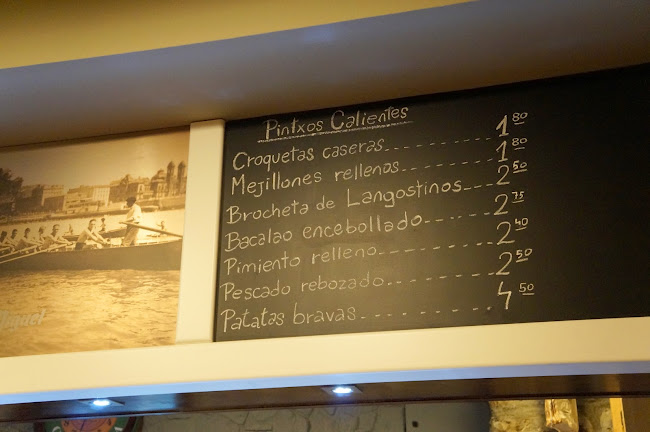 Pintxos Calientes
Croquetas caseras 1 80
Mejillones rellenos 1 80
Brocheta de Langostinos 2 50
Bacalao encebollado 2 75
Pimiento relleno 2 40
Pescado rebozado 2 50
Patatas bravas 4 50